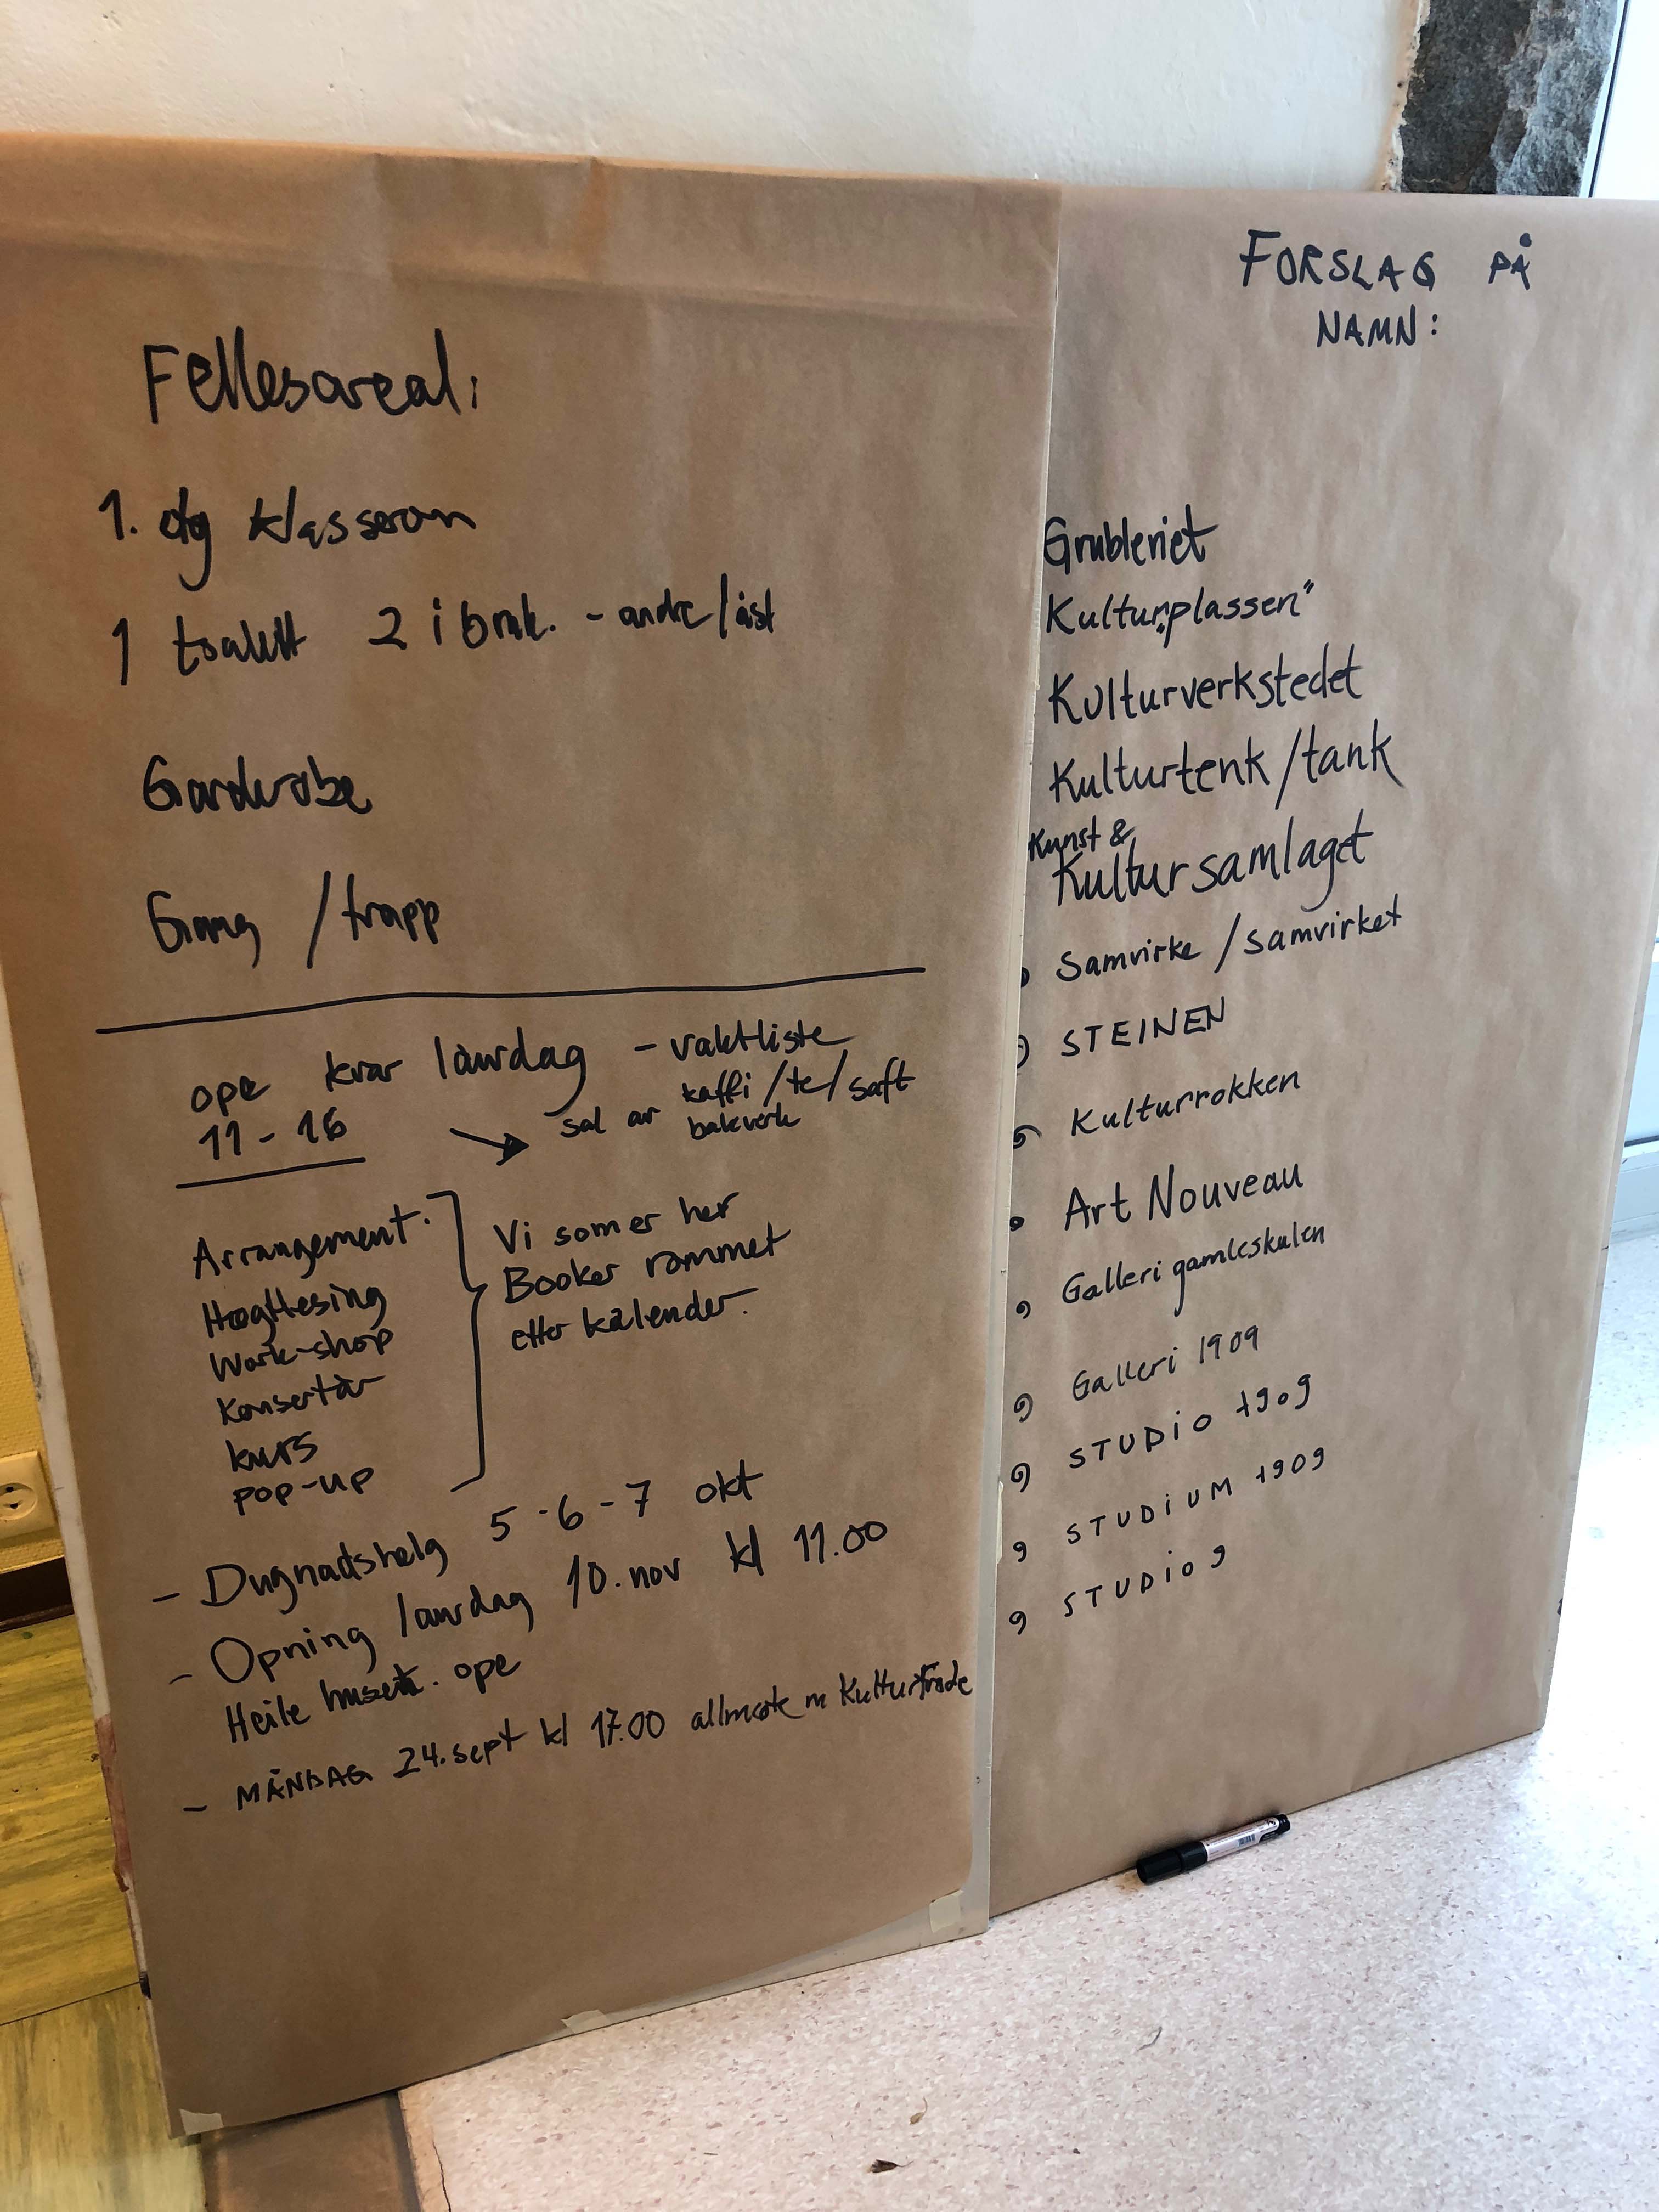 Fellesareal:
1. etg klasserom
1 toalett 2 i bruk. - andre/låst
Garderobe
Gang /trapp
ope kvar laurdag - vaktliste
11 - 16
sal av kaffi /te/ saft
bakverk
Arrangement.
Høgttesing
Work-shop
Konsertar
kurs
pop-up
Vi som er her
Booker rommet
etter kalender.
- Dugnadshelg 5-6-7 okt
- Opning laurdag 10. nov kl 11.00
Heile huset. ope
- MÅNDAG 24. sept kl 17.00 allmøte m Kultur
FORSLAG PÅ
NAMN:
Grubleriet
Kultur„plassen"
Kulturverkstedet
Kulturtenk /tank
Kunst &
Kultursamlaget
Samvirke / samvirket
STEINEN
Kulturrokken
Art Nouveau
Galleri gamleskulen
Galleri 1909
STUDIO 1909
STUDIUM 1909
STUDIO 9